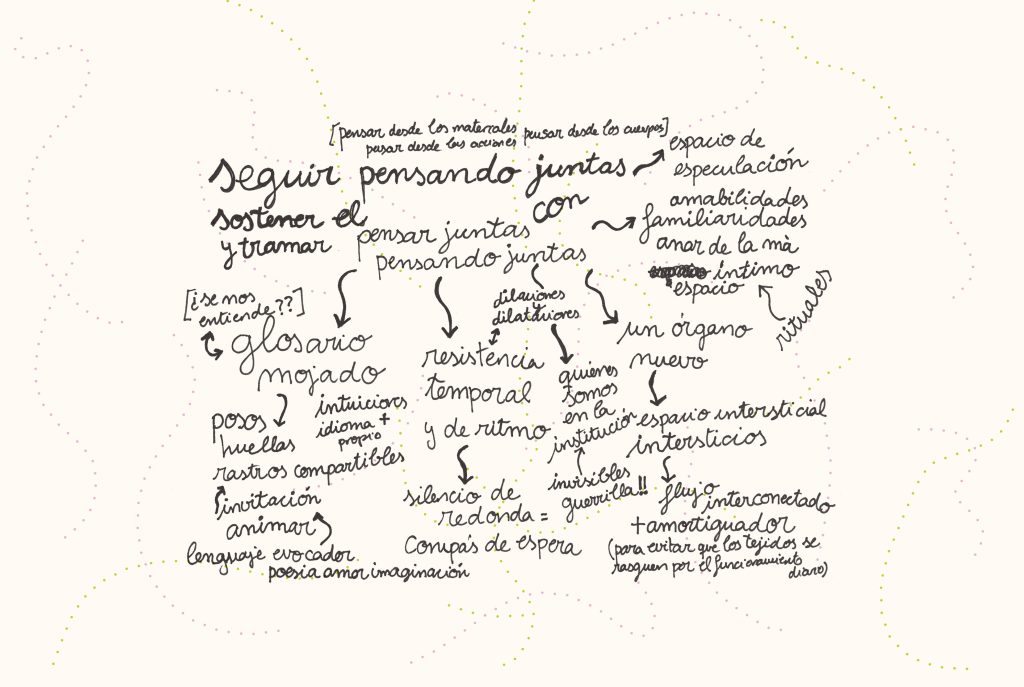 [pensar desde los materiales pensar desde los cuerpos]
pensar desde las acciones
seguir pensando juntas
sostener el
y tramar
con
pensar juntas
pensando juntas
espacio de
especulación
amabilidades
familiaridades
anar de la mà
íntimo
espacio
rituales
[¿se nos
entiende??]
glosario
mojado
posos
huellas
rastros compartibles
intuiciones
idioma +
propio
invitación
animar
lenguaje evocador
poesía amor imaginación
resistencia
temporal
y de ritmo
silencio de
redonda =
Compás de espera
dilaciones
y
dilataciones
quiénes
somos
en la
institución
invisibles
guerrilla!!
un órgano
nuevo
espacio intersticial
intersticios
flujo
interconectado
+amortiguador
(para evitar que los tejidos se
rasguen por el funcionamiento
diario)